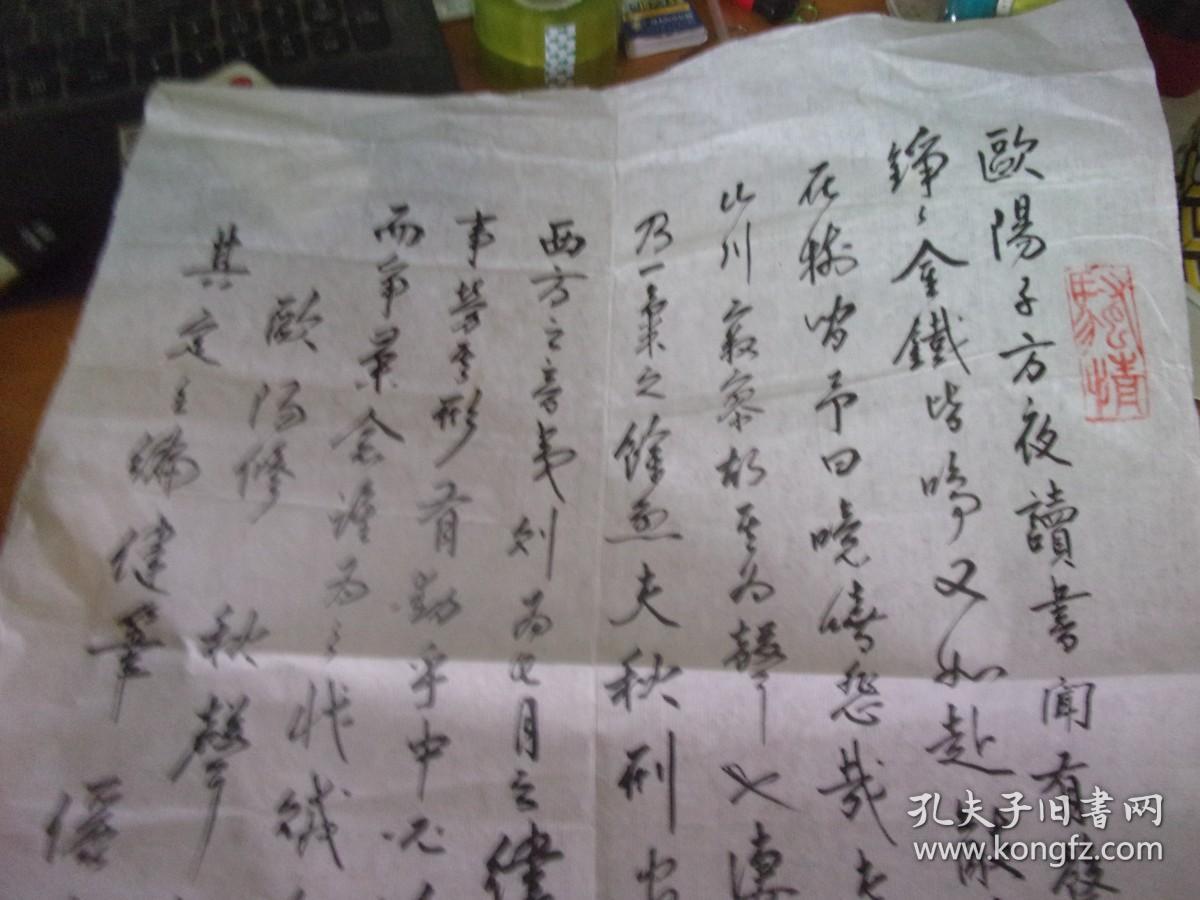 歐陽子方夜讀書聞有聲
錚錚金鐵皆鳴又如赴敵
在樹間予曰噫嘻悲哉
山川寂寥故其為聲也淒
乃一氣之餘烈夫秋刑官
西方之音夷則為七月之律
事勞其形有動乎中
而爭榮念誰為之戕賊
歐陽修 秋聲
其定主編
孔夫子旧书网
www.kongfz.com